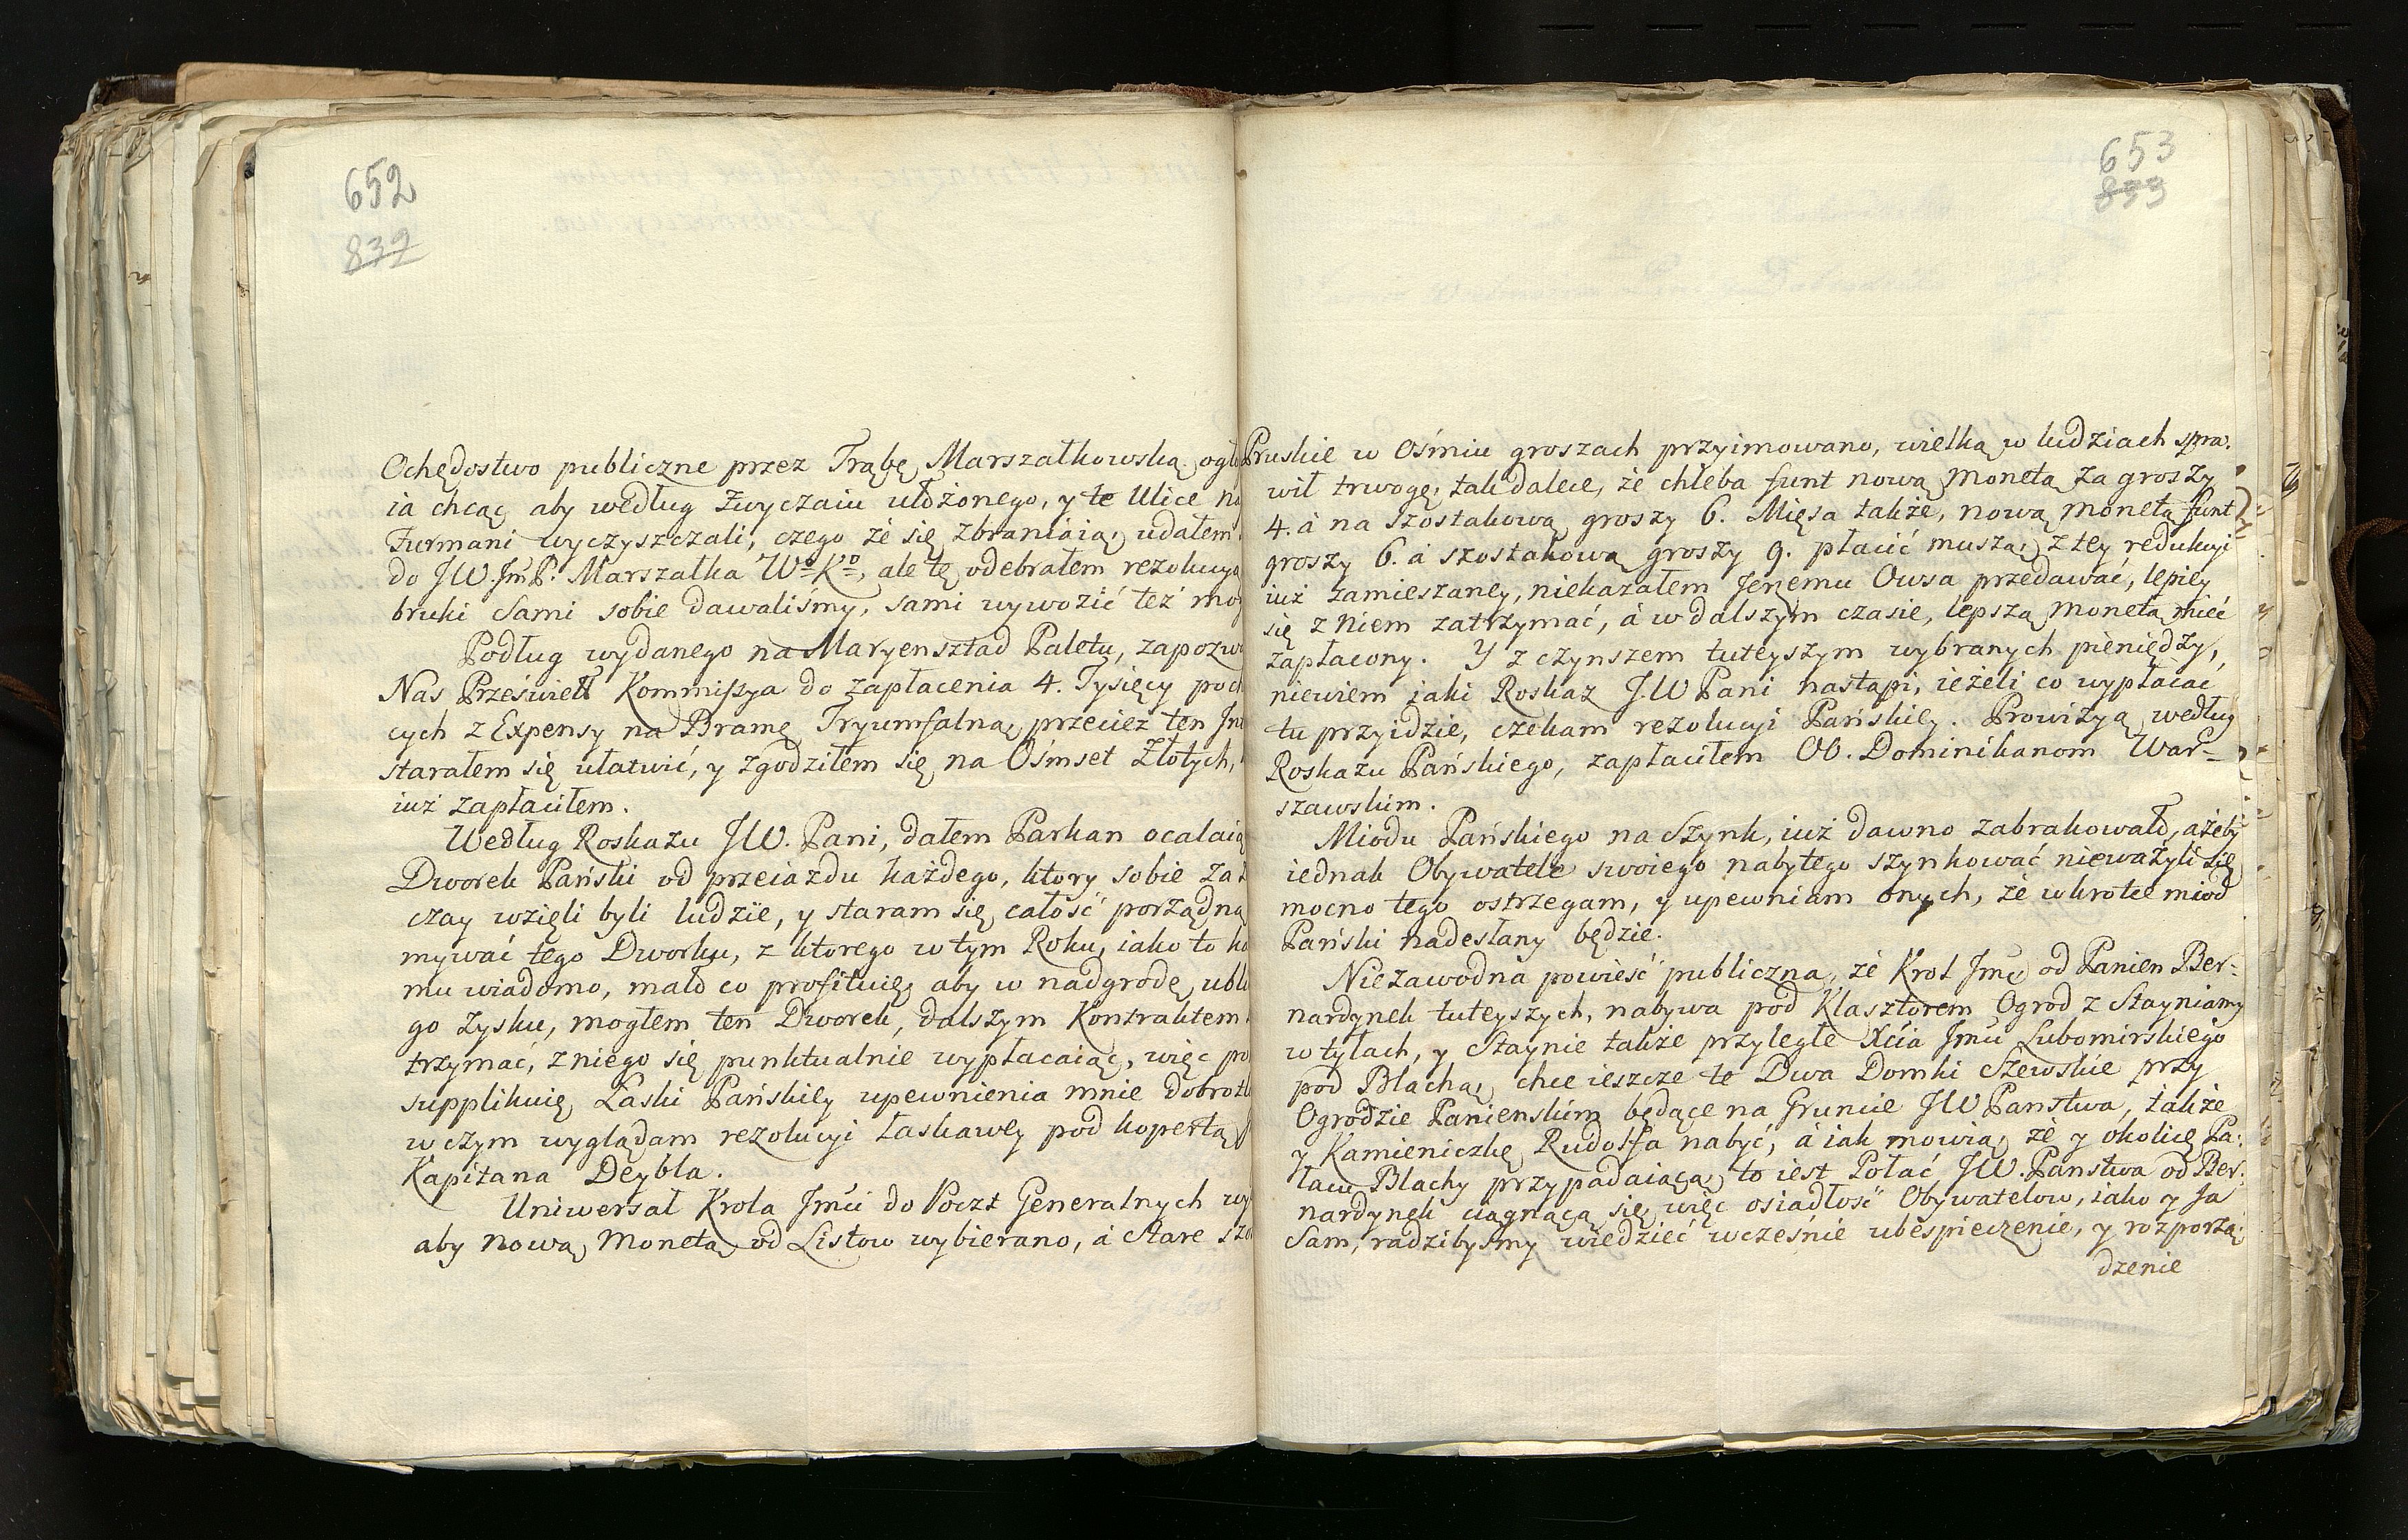 652
832
Ochędostwo publiczne przez Trąbę Marszałkowską ogł
ia chcąc aby według zwyczaiu ułożonego, y te Ulice
Furmani wyczyszczali, czego że się zbraniaią, udałem
do JW. Jm̃ P. Marszałka Wo Ko, ale tę odebrałem rezolucyą
bruki sami sobie dawaliśmy, sami wywozić też mo
Podług wydanego na Maryensztad Paletu, zapozw
Nas Przeświet Kommissya do zapłacenia 4. Tysięcy poch
cych z Expensy na Bramę Tryumfalną, przecież ten
starałem się ułatwić, y zgodziłem się na Ośmset Złotych,
iuż zapłaciłem.
Według Roskazu JW. Pani, dałem Parkan ocalaią
Dworek Pański od przeiazdu każdego, ktory sobie za z
czay wzięli byli ludzie, y staram się całość porządną
mywać tego Dworku, z ktorego w tym Roku, iako to ko
mu wiadomo, mało co profituię, aby w nadgrodę ubł
go zysku, mogłem ten Dworek, dalszym Kontraktem
trzymać, z niego się punktualnie wypłacaiąc, więc po
supplikuię Łaski Pańskiey upewnienia mnie dobrotl
w czym wyglądam rezolucyi łaskawey pod kopertą
Kapitana Deybla.
Uniwersał Krola Jm̃ci do Poczt Generalnych wy
aby nową Monetą od Listow wybierano, á stare szo
653
833
Pruskie w Ośmiu groszach przyimowano, wielką w ludziach spra-
wił trwogę, tak dalece, że chleba funt nową Monetą za groszy
4. á na szostakową groszy 6. Mięsa także, nową monetą funt
groszy 6. á szostakową groszy 9. płacić muszą, z tey redukcyi
iuż zamieszaney, niekazałem Jenemu Owsa przedawać, lepiey
się z niem zatrzymać, á w dalszym czasie, lepszą Monetą mieć
zapłacony. Y z czynszem tuteyszym wybranych pieniędzy,
niewiem jaki Roskaz JW Pani nastąpi, ieżeli co wypłacać
tu przyidzie, czekam rezolucyi Pańskiey. Prowizyą według
Roskazu Pańskiego, zapłaciłem OO. Dominikanom War-
szawskim.
Miodu Pańskiego na Szynk, iuż dawno zabrakowało, ażeby
iednak Obywatele swoiego nabytego szynkować nieważyli się
mocno tego ostrzegam, y upewniam onych, że wkrotce miod
Pański nadesłany będzie.
Niezawodna powieść publiczna, że Krol Jmć od Panien Ber-
nardynek tuteyszych, nabywa pod Klasztorem Ogrod z Stayniamy
w tyłach, y Staynie także przyległe Xcia Jmci Lubomirskiego
pod Blachą, chce ieszcze te Dwa Domki Szewskie przy
Ogrodzie Panienskim będące na Gruncie JW Panstwa, także
y Kamieniczkę Rudolfa nabyć, á iak mowią, że y okolicę Pa-
łacu Blachy przypadaiącą, to iest Połać JW. Panstwa od Ber-
nardynek ciągnącą się, więc osiadłość Obywatelow, iako y Ja
Sam, radzibyśmy wiedzieć wcześnie ubespieczenie, y rozporzą-
dzenie